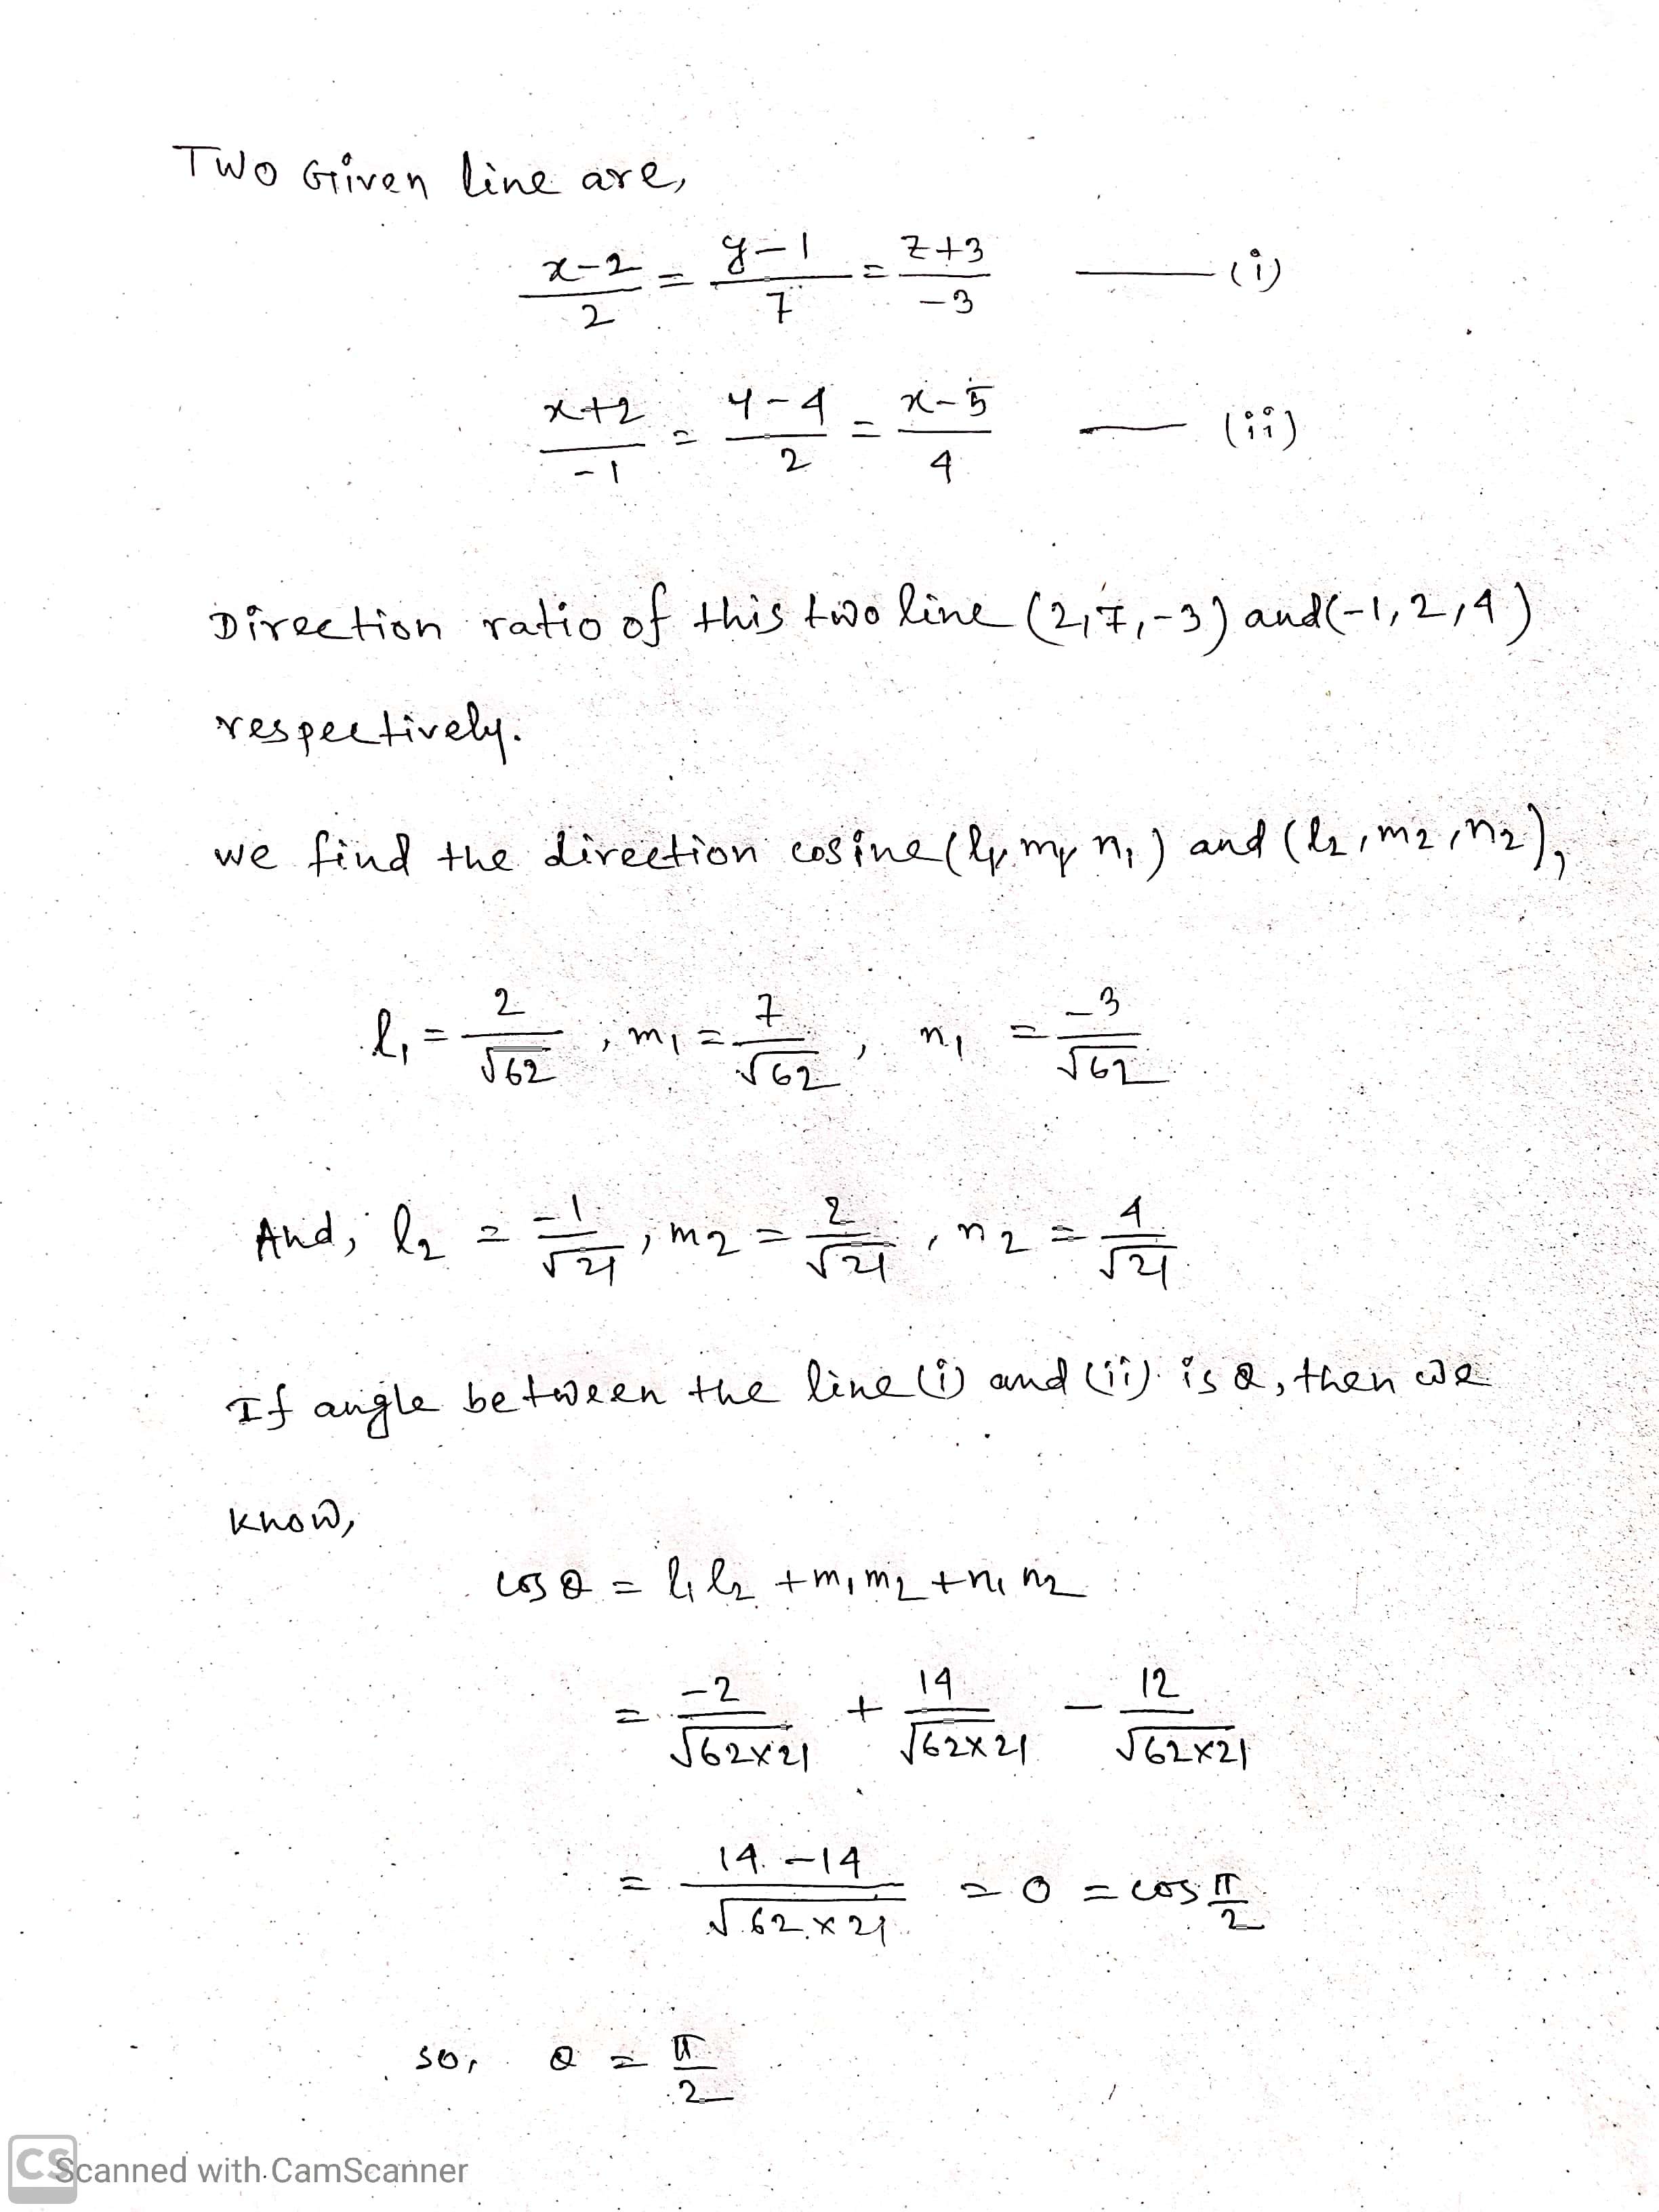 Two Given line are,
x-2/2 = y-1/7 = z+3/-3 —— (i)
x+2/-1 = y-4/2 = x-5/4 —— (ii)
Direction ratio of this two line (2,7,-3) and (-1,2,4)
respectively.
we find the direction cosine (l₁, m₁, n₁) and (l₂, m₂, n₂),
l₁ = 2/√62 , m₁ = 7/√62 , n₁ = -3/√62
And, l₂ = -1/√21 , m₂ = 2/√21 , n₂ = 4/√21
If angle between the line (i) and (ii) is θ, then we
know,
cos θ = l₁l₂ + m₁m₂ + n₁n₂
= -2/√62×21 + 14/√62×21 - 12/√62×21
= 14-14/√62×21 = 0 = cos π/2
so, θ = π/2
CS Scanned with CamScanner